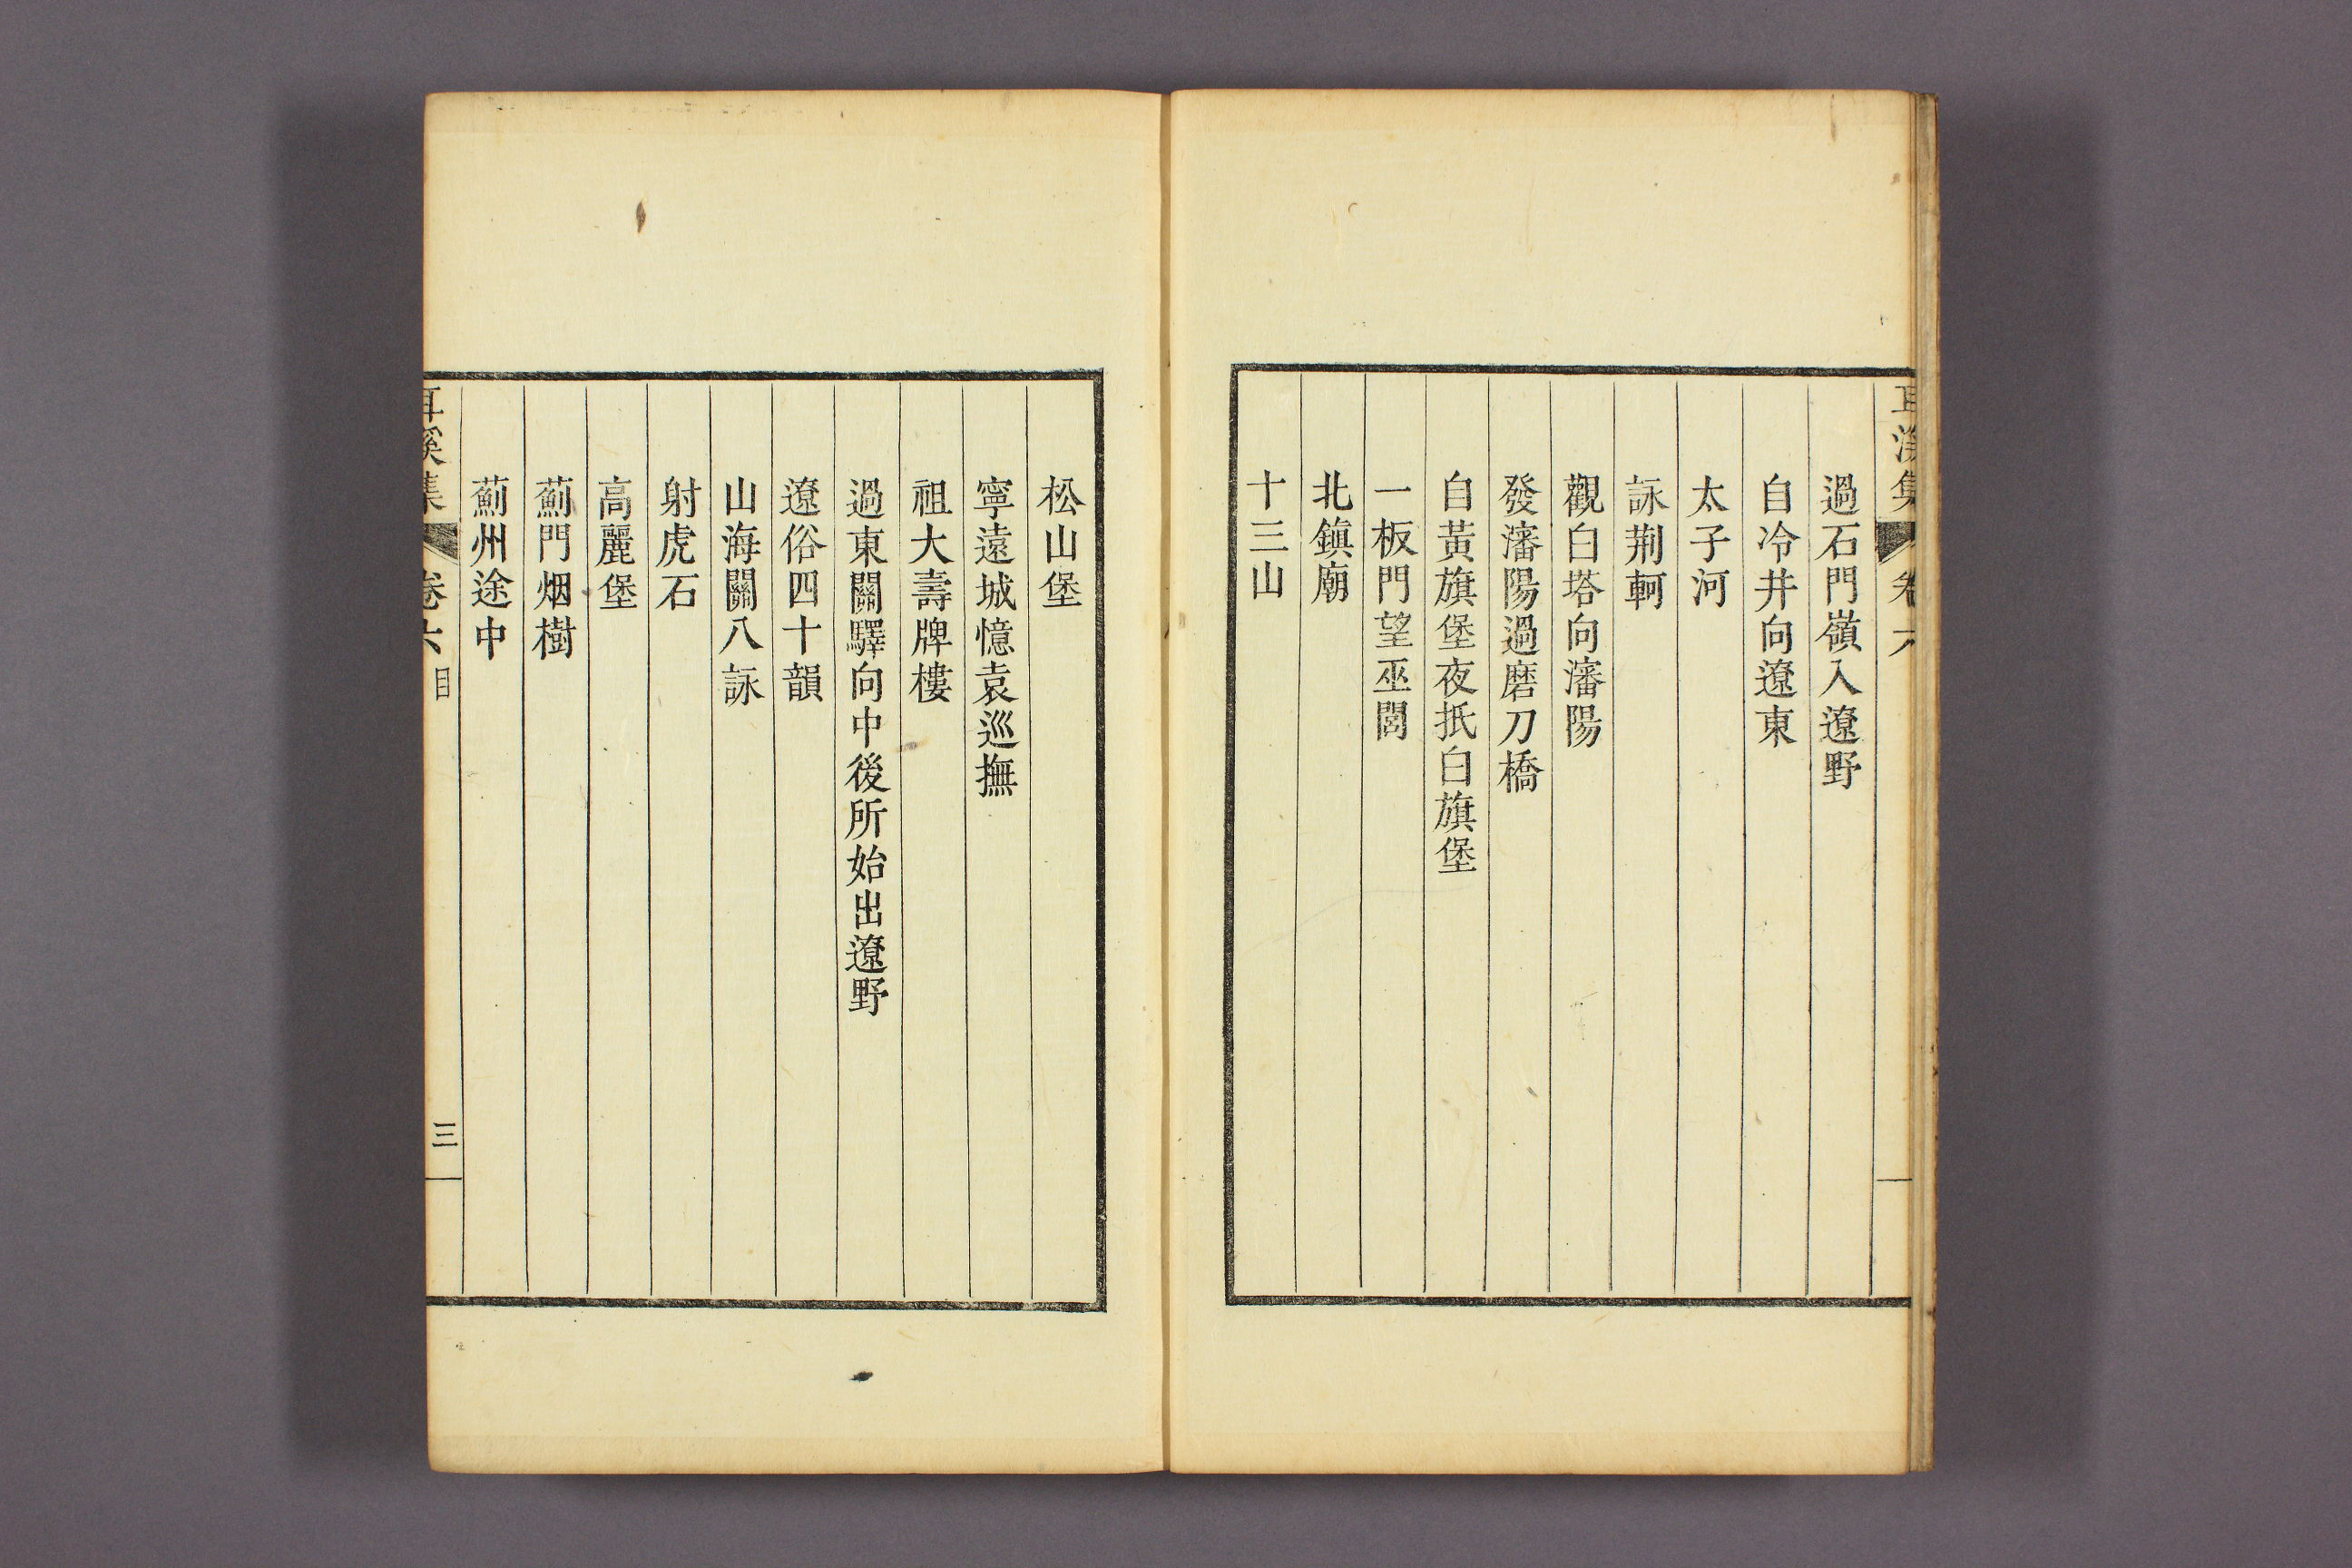 耳溪集 卷六
過石門嶺入遼野
自冷井向遼東
太子河
詠荆軻
觀白塔向瀋陽
發瀋陽過磨刀橋
自黃旗堡夜抵白旗堡
一板門望巫閭
北鎭廟
十三山
松山堡
寧遠城憶袁巡撫
祖大壽牌樓
過東關驛向中後所始出遼野
遼俗四十韻
山海關八詠
射虎石
高麗堡
薊門烟樹
薊州途中
耳溪集 卷六 目 三